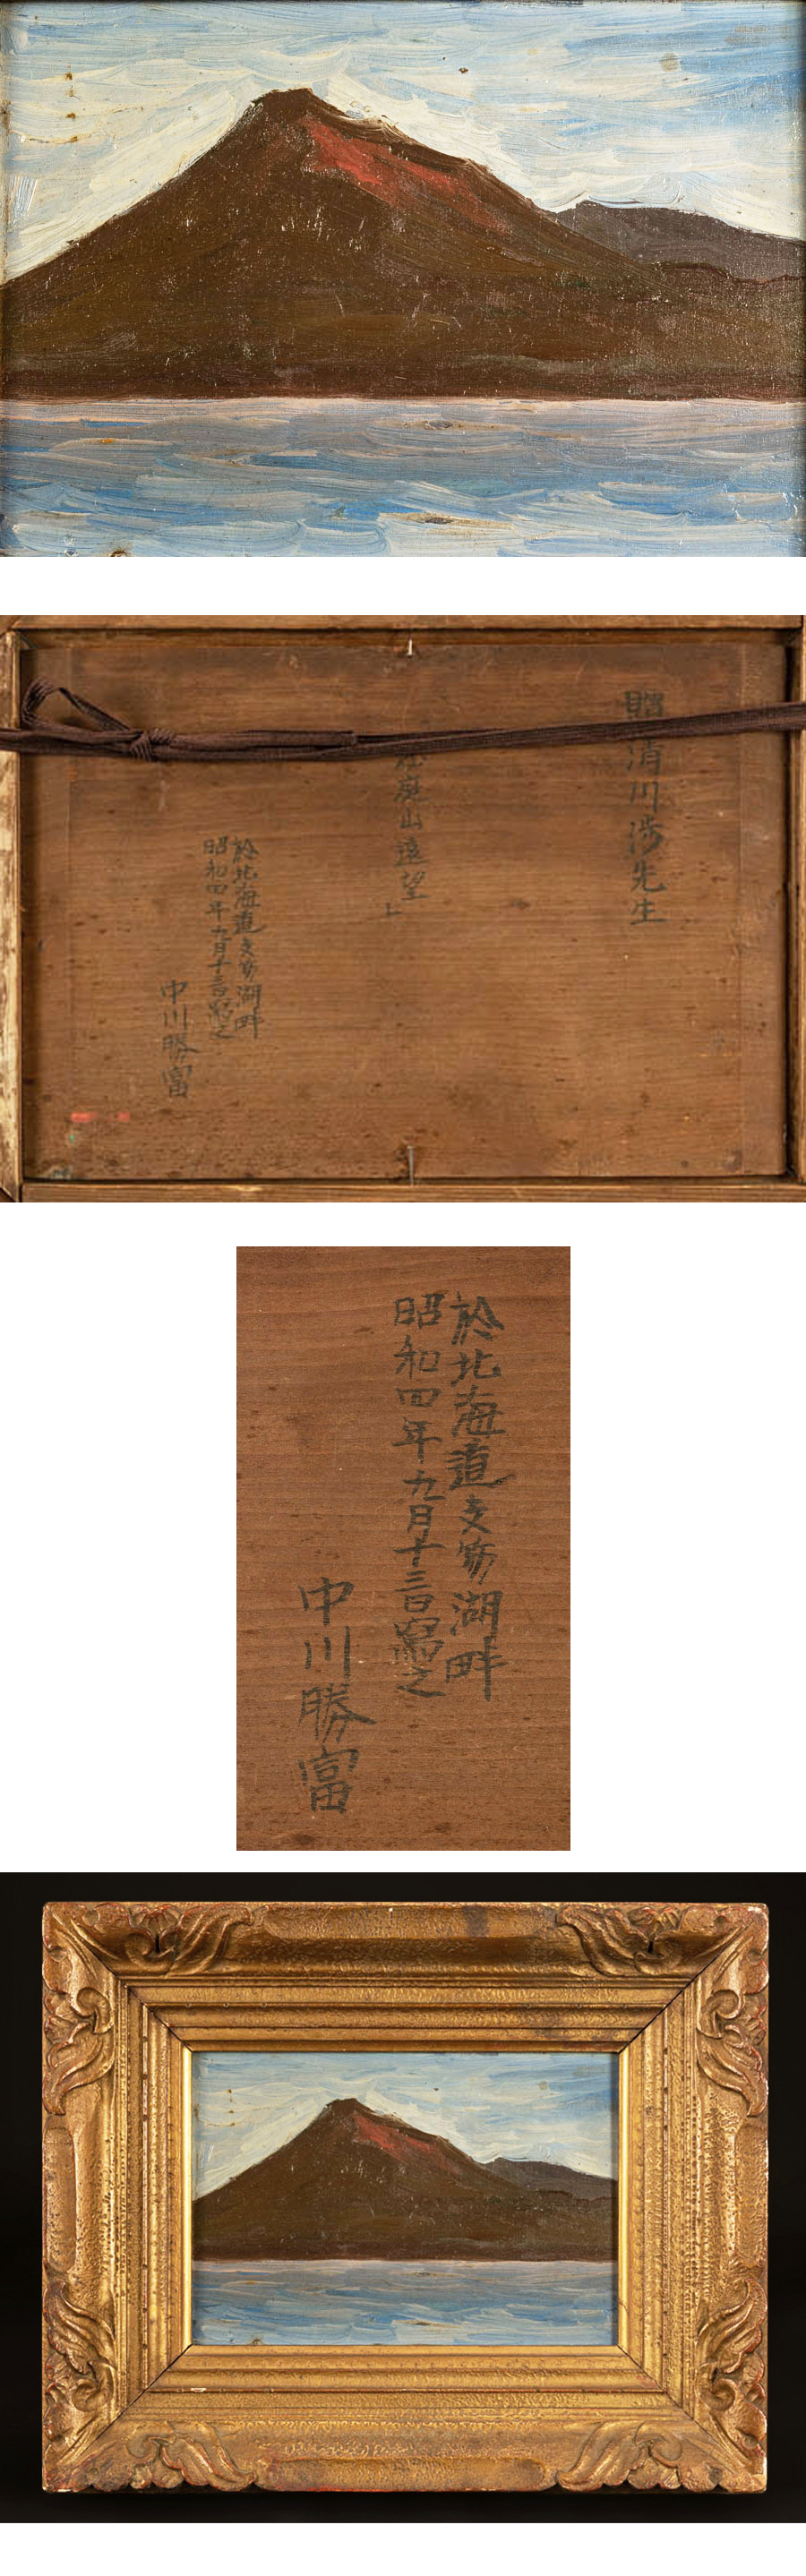 贈清川渉先生
庭山遠望」
於北海道支笏湖畔
昭和四年九月十三日寫之
中川勝富
於北海道支笏湖畔
昭和四年九月十三日寫之
中川勝富